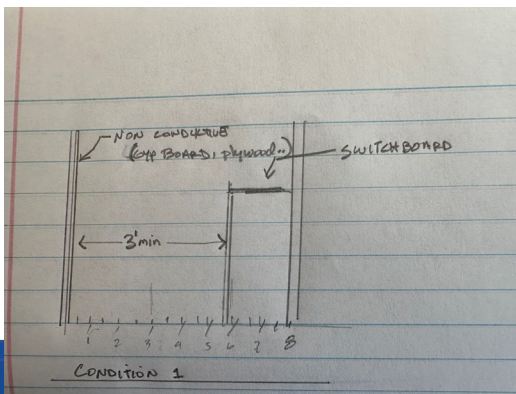 NON CONDUCTIVE
(GYP BOARD, plywood..)
SWITCHBOARD
3' min
1 2 3 4 5 6 7 8
CONDITION 1